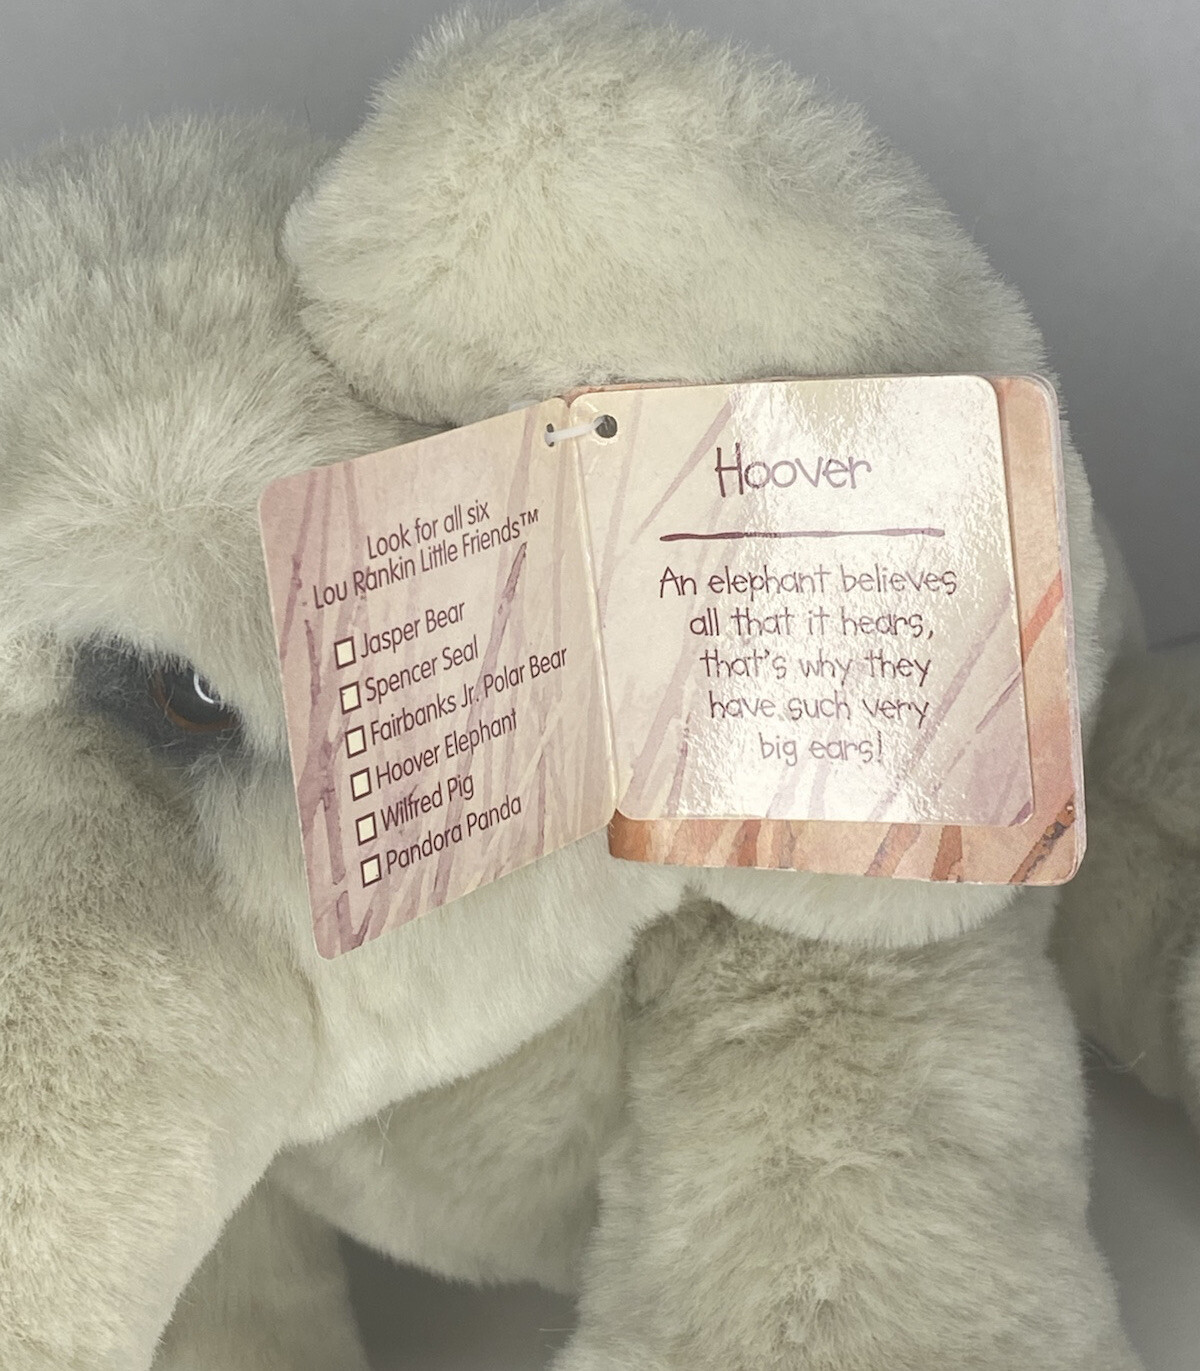 Look for all six
Lou Rankin Little Friends™
Jasper Bear
Spencer Seal
Fairbanks Jr. Polar Bear
Hoover Elephant
Wilfred Pig
Pandora Panda
Hoover
An elephant believes
all that it hears,
that's why they
have such very
big ears!